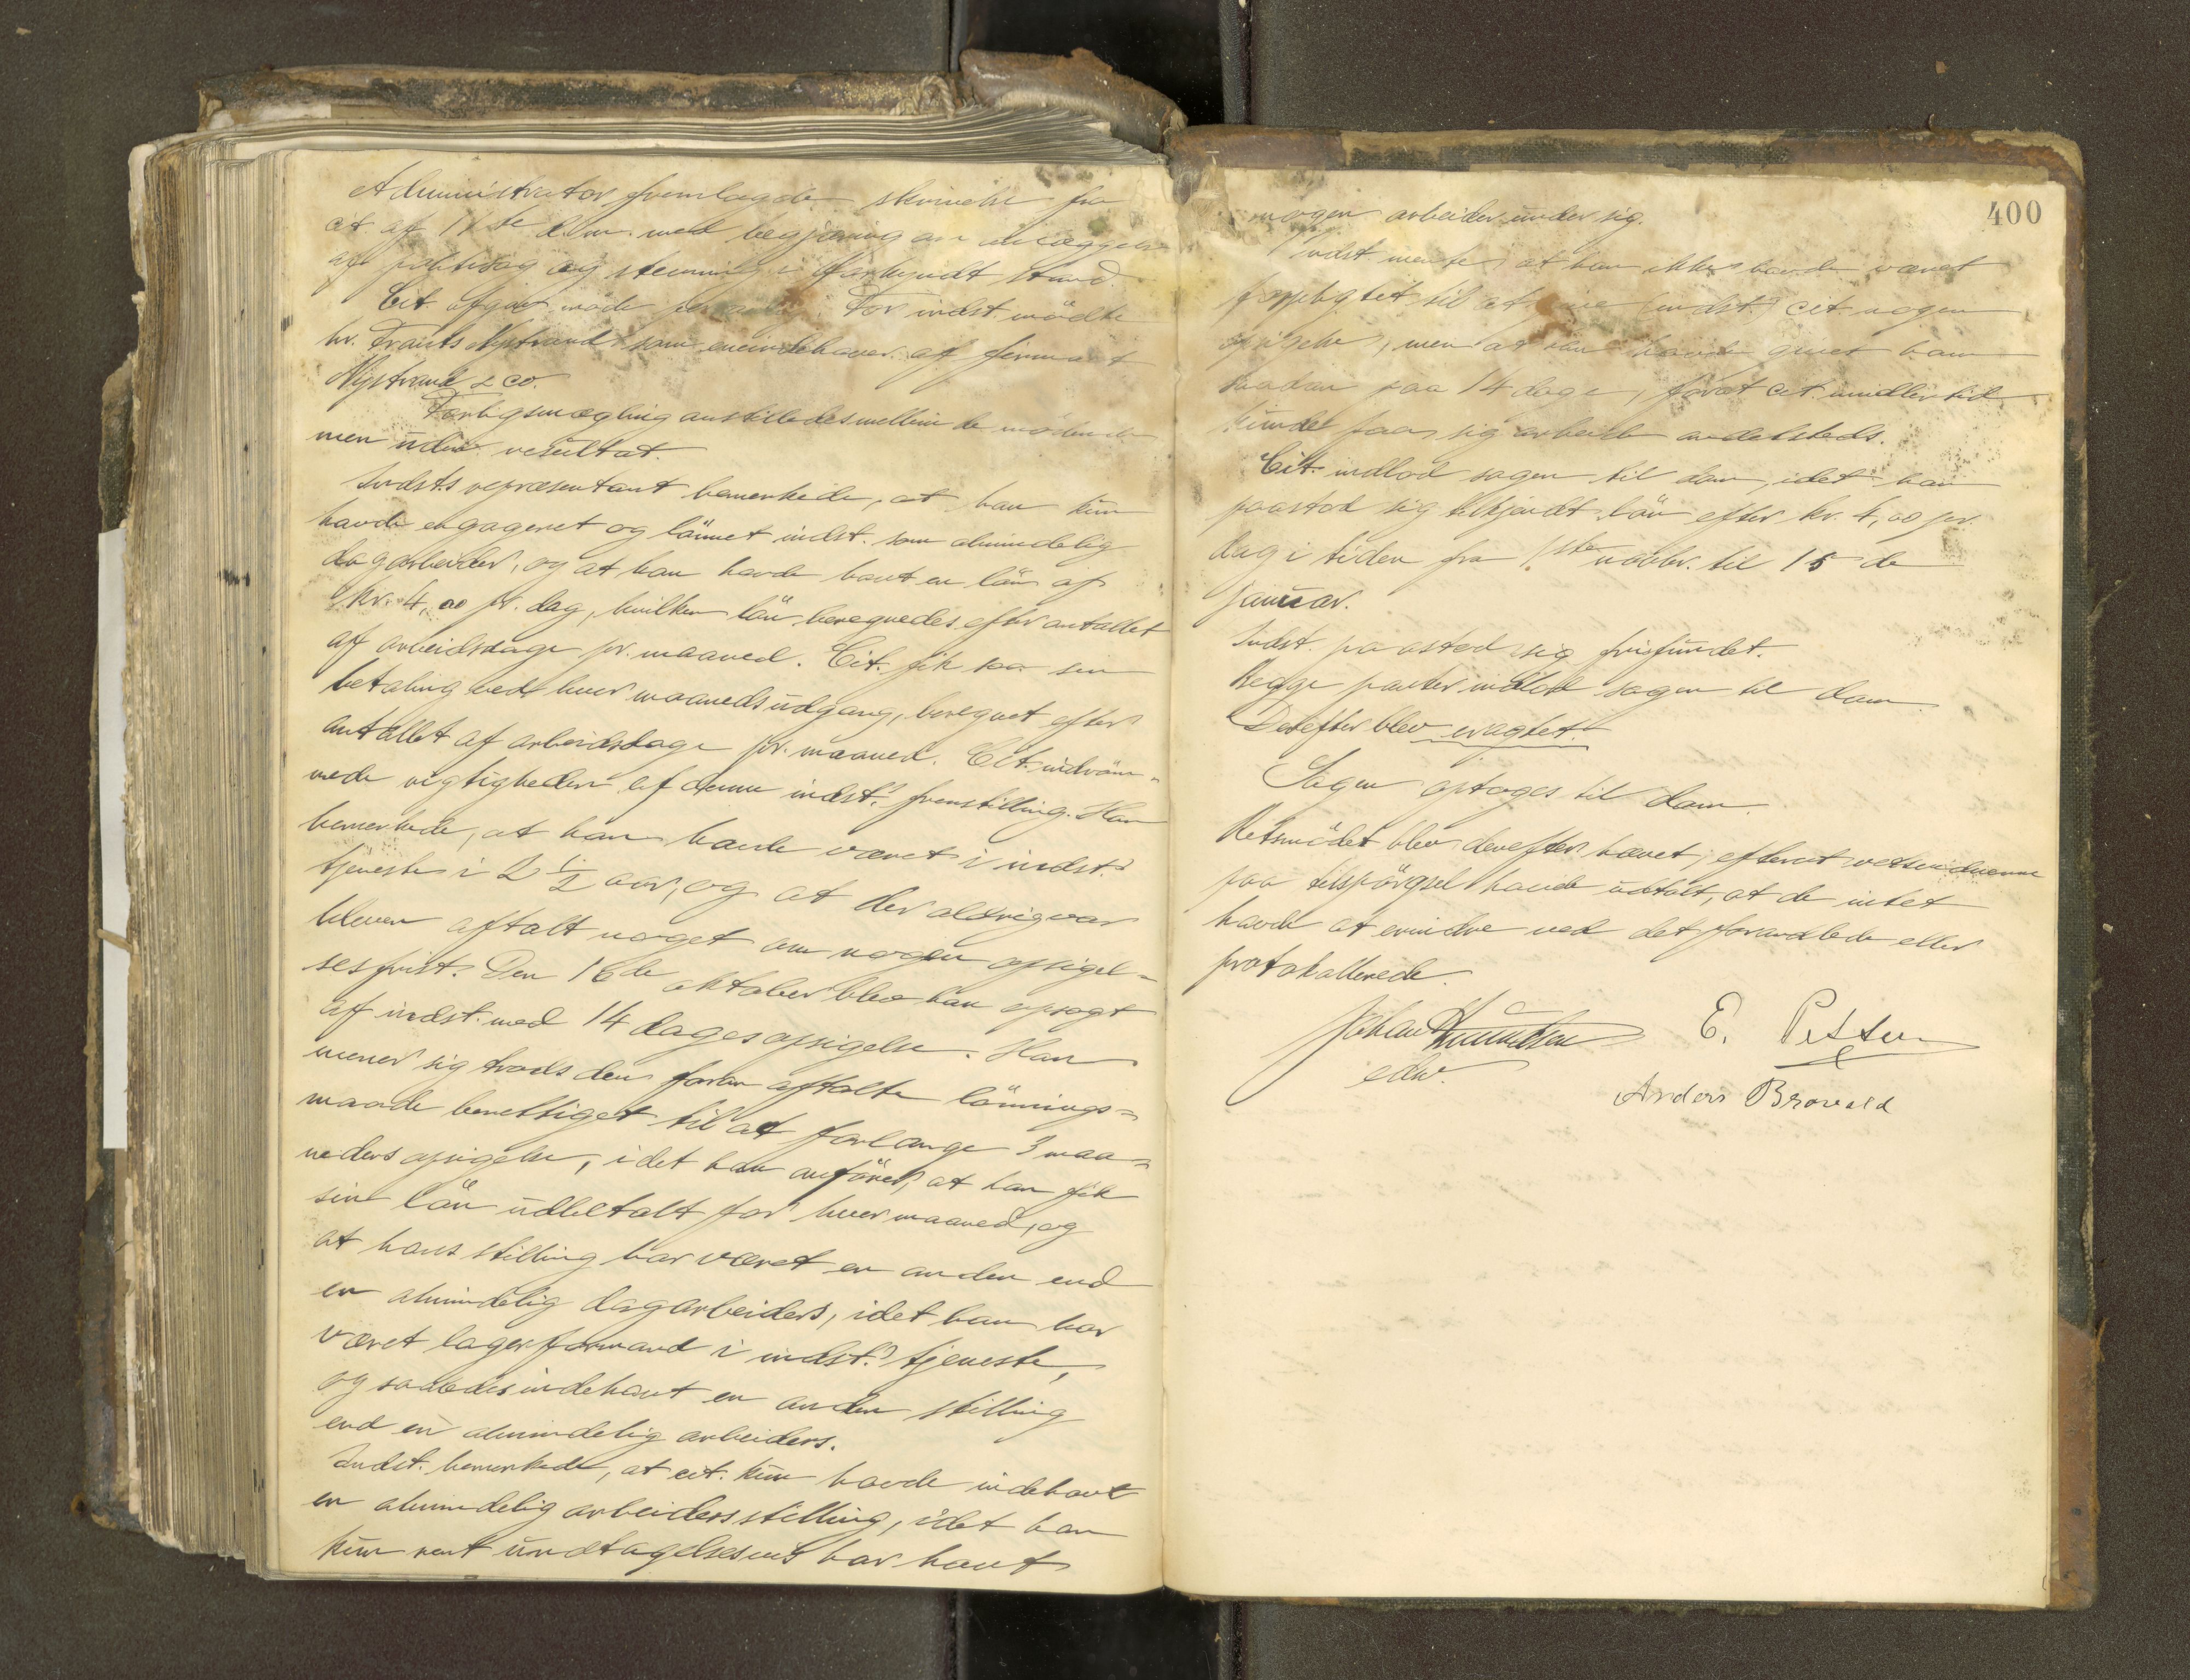 Administrator fremlagde skrivelse fra
cit. af 11te d.m. med begjæring om anlæggelse
af politisag og stevning i forkyndt stand.
Cit. afgav møde personlig. For indst. mödte
hr. Frants Nystrand som eneindehaver af firmaet
Nystrand & co.
Forligsmægling anstilledes mellem de mödende
men uden resultat.
Indsts repræsentant bemerkede, at han kun
havde engageret og lönnet indst. som almindelig
dagarbeider, og at han havde havt en lön af
kr. 4,00 pr. dag, hvilken lön beregnedes efter antallet
af arbeidsdage pr. maaned. Cit. fik saa sin
betaling ved hver maaneds udgang, beregnet efter
antallet af arbeidsdage pr. maaned. Cit. indröm-
mede rigtigheden af denne indst.s fremstilling. Han
bemerkede, at han havde været i indst.s
tjeneste i 2 1/2 aar, og at der aldrig var
bleven aftalt noget om nogen opsigel-
sesfrist. Den 16de oktober blev han opsagt
af indst. med 14 dages opsigelse. Han
mener sig trods den foran aftalte lönnings-
maade berettiget til at forlange 3 maa-
neders opsigelse, idet han anförer, at han fik
sin lön udbetalt for hver maaned, og
at hans stilling har været en anden end
en almindelig dagarbeiders, idet han har
været lagerformand i indst.s tjeneste,
og saaledes indehavt en anden stilling
end en almindelig arbeiders.
Indst. bemerkede, at cit. kun havde indehavt
en almindelig arbeiders stilling, idet han
kun rent undtagelsesvis har havt
400
nogen arbeider under sig.
Indst. mente, at han ikke havde været
forpligtet til at give (indst.) cit. nogen
opsigelse, men at han havde givet ham
saadan paa 14 dage, forat cit. imidlertid
kunde faa sig arbeide andetsteds.
Cit. indlod sagen til dom, idet han
paastod sig tilkjendt lön efter kr. 4,00 pr.
dag i tiden fra 1ste novbr. til 15de
januar.
Indst. paastod sig frifundet.
Begge parter indlod sagen til dom.
Derefter blev eragtet:
Sagen optoges til dom.
Retsmödet blev derefter hævet, efterat retsvidnerne
paa tilspörgsel havde udtalt, at de intet
havde at erindre ved det forhandlede eller
protokollerede.
Johan Knudsen E. Petter
edw.
Anders Brovold